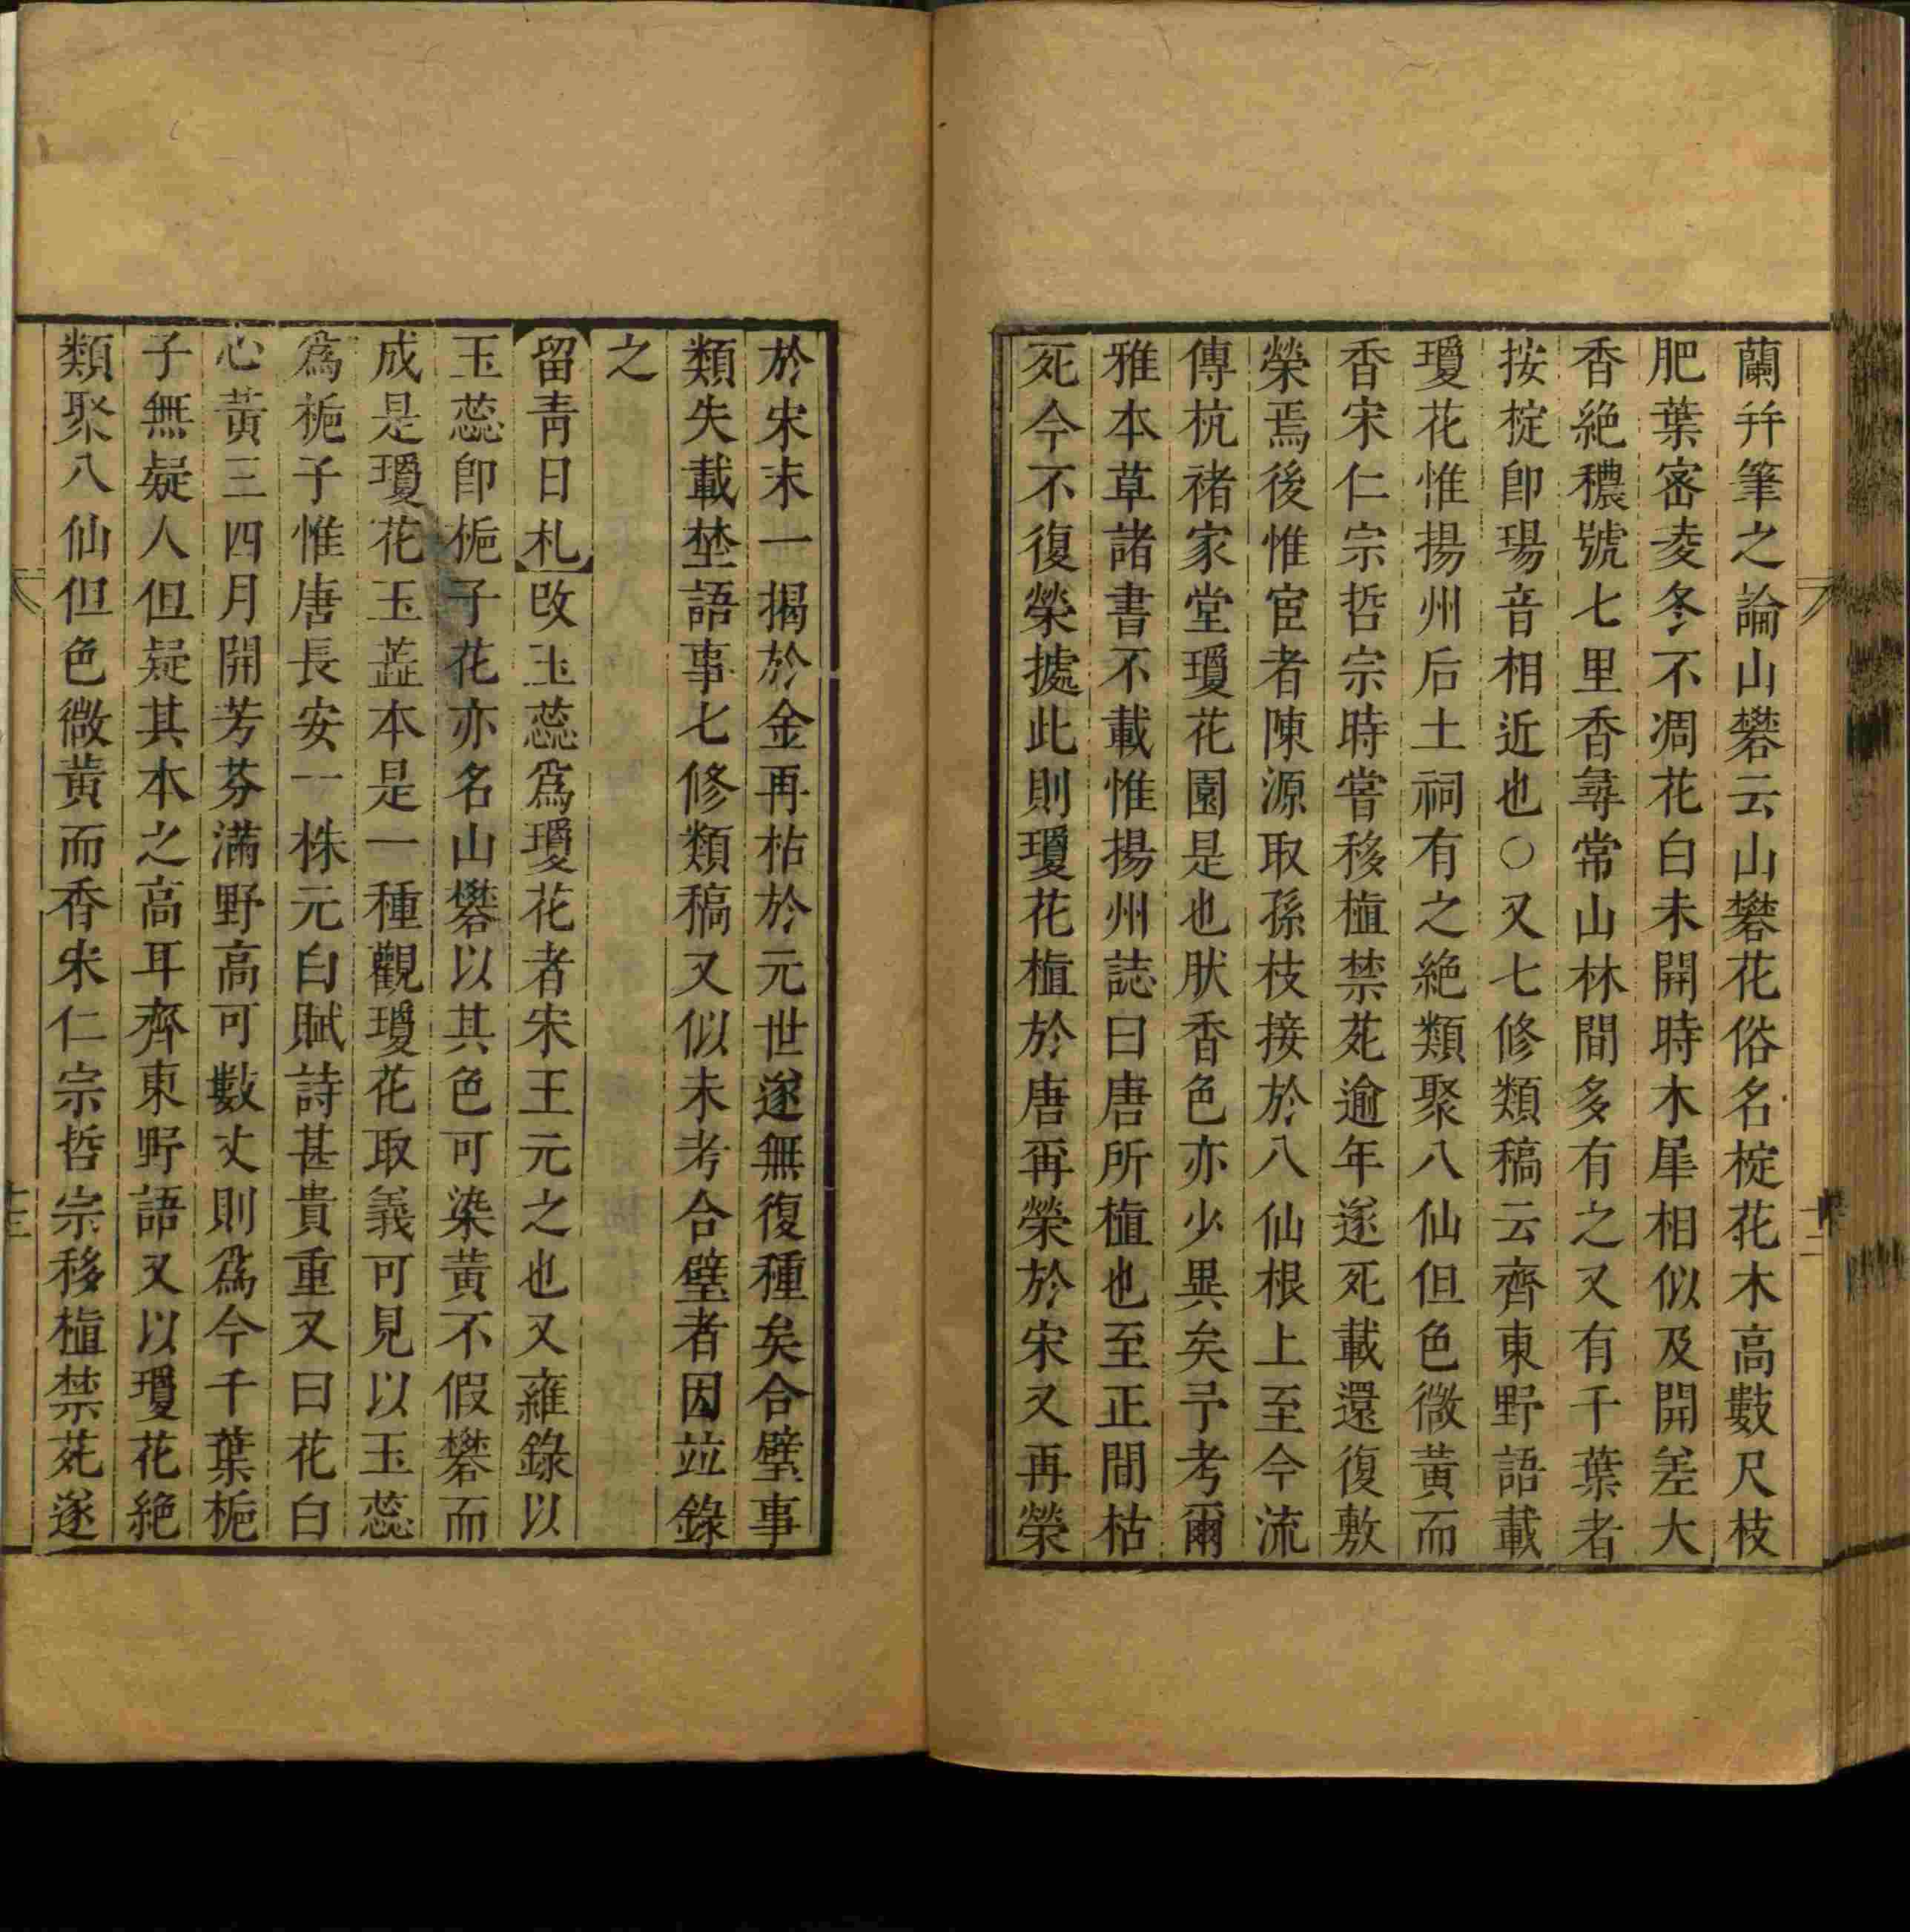 蘭幷筆之論山礬云山礬花俗名椗花木高數尺枝
肥葉密凌冬不凋花白未開時木犀相似及開差大
香絶穠號七里香尋常山林間多有之又有千葉者
按椗卽瑒音相近也○又七修類稿云齊東野語載
瓊花惟揚州后土祠有之絶類聚八仙但色微黃而
香宋仁宗哲宗時嘗移植禁苑逾年遂死載還復敷
榮焉後惟宦者陳源取孫枝接於八仙根上至今流
傳杭褚家堂瓊花園是也肰香色亦少異矣予考爾
雅本草諸書不載惟揚州誌曰唐所植也至正間枯
死今不復榮據此則瓊花植於唐再榮於宋又再榮
於宋末一揭於金再枯於元世遂無復種矣合璧事
類失載埜語事七修類稿又似未考合璧者因竝錄
之
【留靑日札】改玉蕊爲瓊花者宋王元之也又雍錄以
玉蕊卽梔子花亦名山礬以其色可染黃不假礬而
成是瓊花玉蕋本是一種觀瓊花取義可見以玉蕊
爲梔子惟唐長安一株元白賦詩甚貴重又曰花白
心黃三四月開芳芬滿野高可數丈則爲今千葉梔
子無疑人但疑其本之高耳齊東野語又以瓊花絶
類聚八仙但色微黃而香宋仁宗哲宗移植禁苑遂